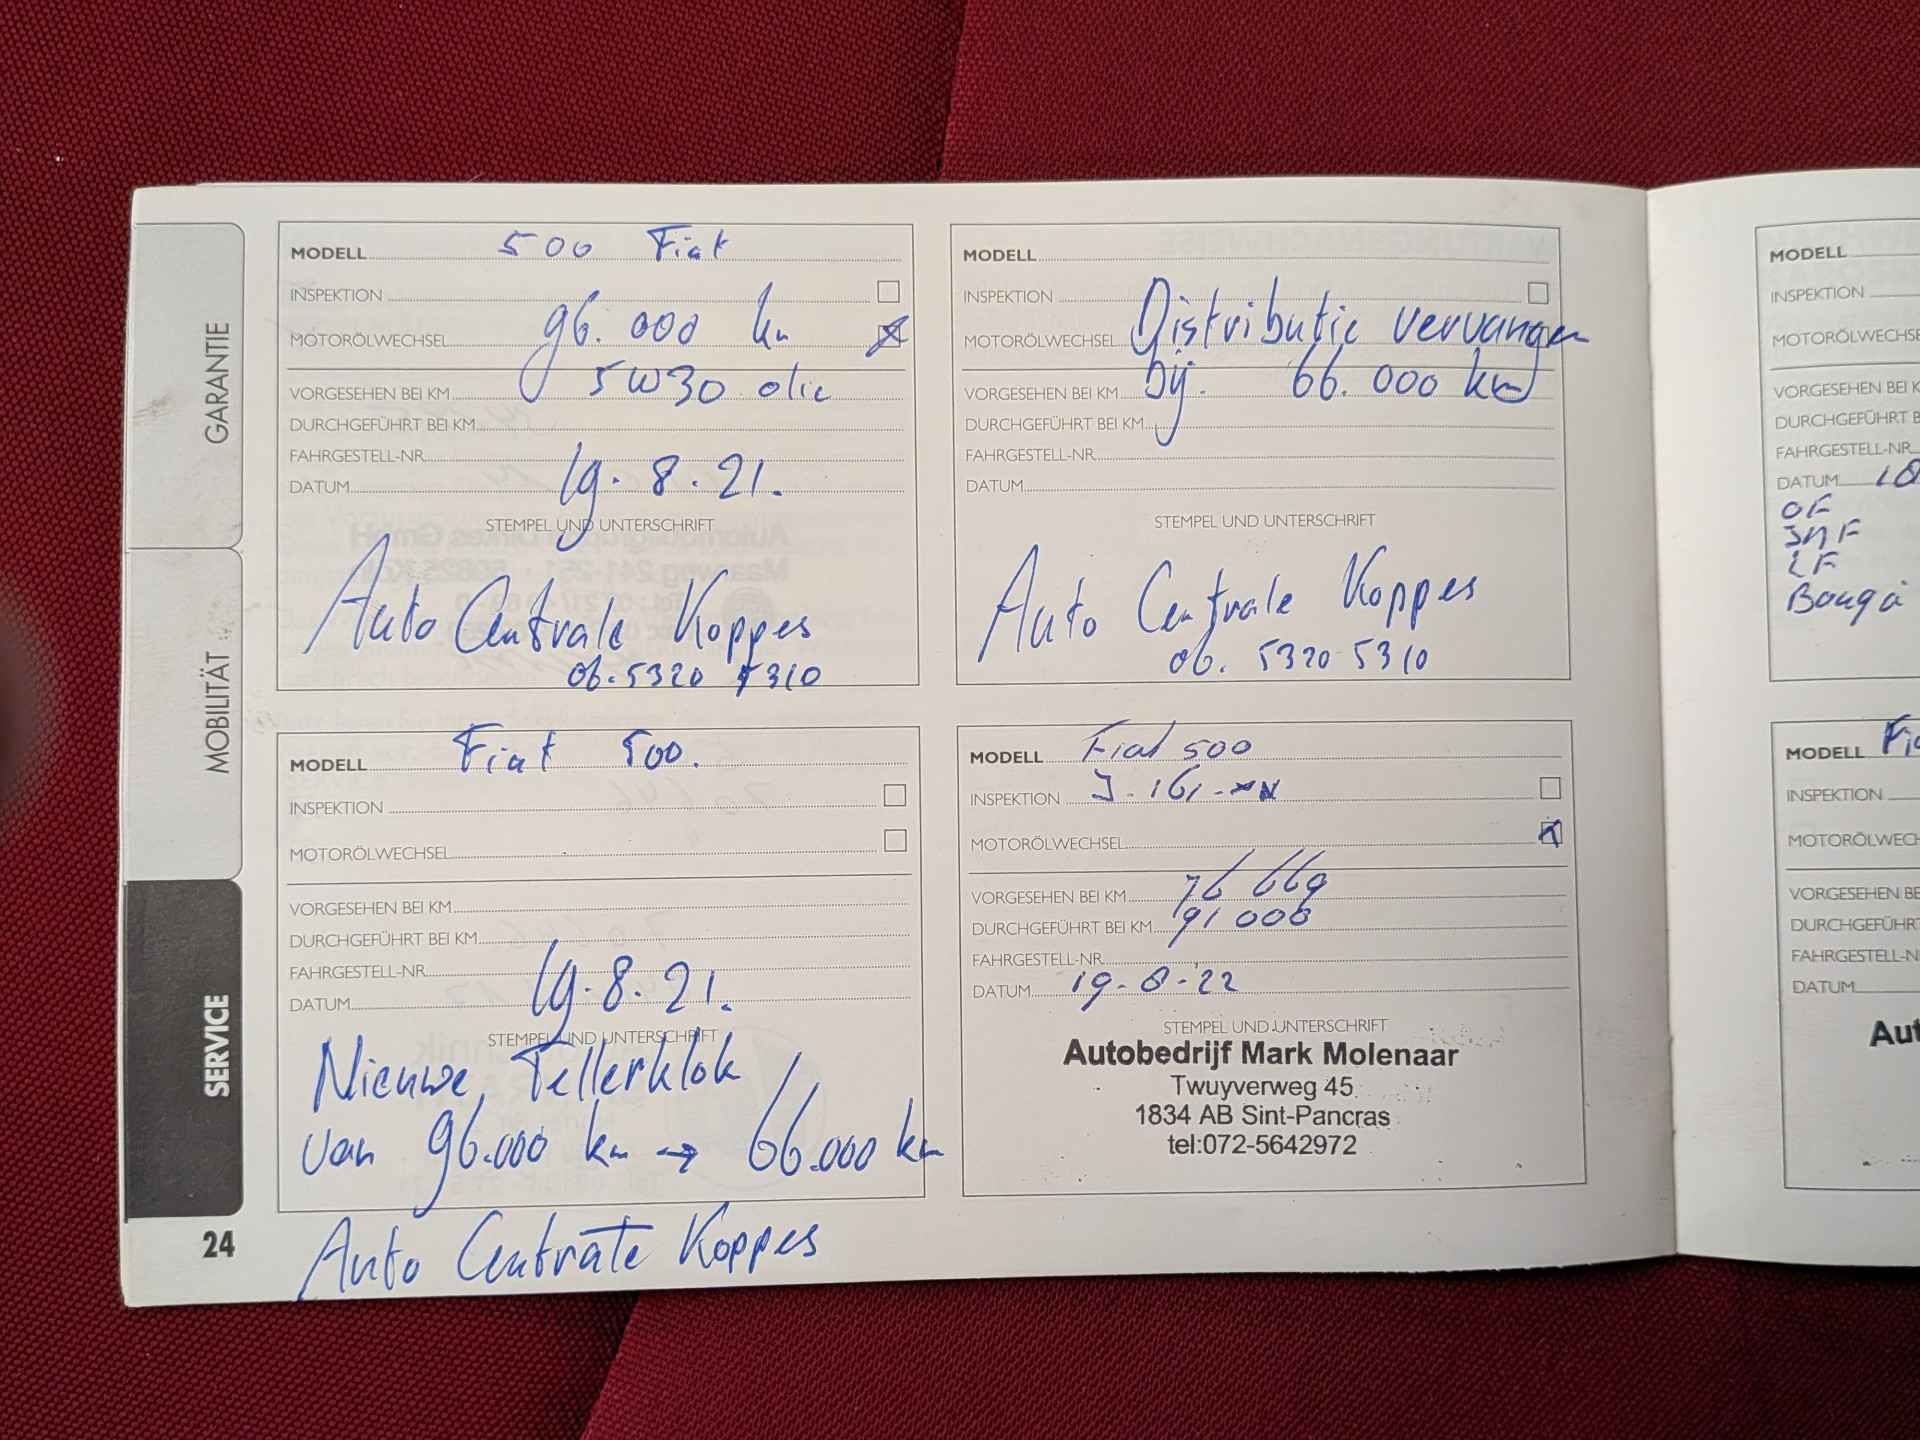 GARANTIE
MOBILITÄT
SERVICE
24
MODELL 500 Fiat
INSPEKTION
96.000 km
MOTORÖLWECHSEL
VORGESEHEN BEI KM 5W30 olie
DURCHGEFÜHRT BEI KM
FAHRGESTELL-NR.
DATUM 19.8.21.
STEMPEL UND UNTERSCHRIFT
Auto Centrale Koppes
06.5320 5310
MODELL
INSPEKTION
MOTORÖLWECHSEL Distributie vervangen
VORGESEHEN BEI KM bij. 66.000 km
DURCHGEFÜHRT BEI KM
FAHRGESTELL-NR.
DATUM
STEMPEL UND UNTERSCHRIFT
Auto Centrale Koppes
06. 5320 5310
MODELL Fiat 500.
INSPEKTION
MOTORÖLWECHSEL
VORGESEHEN BEI KM
DURCHGEFÜHRT BEI KM
FAHRGESTELL-NR.
DATUM 19.8.21.
STEMPEL UND UNTERSCHRIFT
Nieuwe Tellerklok
van 96.000 km → 66.000 km
Auto Centrale Koppes
MODELL Fiat 500
INSPEKTION
MOTORÖLWECHSEL
VORGESEHEN BEI KM 76 669
DURCHGEFÜHRT BEI KM 91 000
FAHRGESTELL-NR.
DATUM 19-8-22
STEMPEL UND UNTERSCHRIFT
Autobedrijf Mark Molenaar
Twuyverweg 45
1834 AB Sint-Pancras
tel:072-5642972
MODELL
INSPEKTION
MOTORÖLWECHSE
VORGESEHEN BEI K
DURCHGEFÜHRT B
FAHRGESTELL-NR.
DATUM
OF
LF
MODELL Fi
INSPEKTION
MOTORÖLWECH
VORGESEHEN BE
DURCHGEFÜHRT
FAHRGESTELL-N
DATUM
Aut